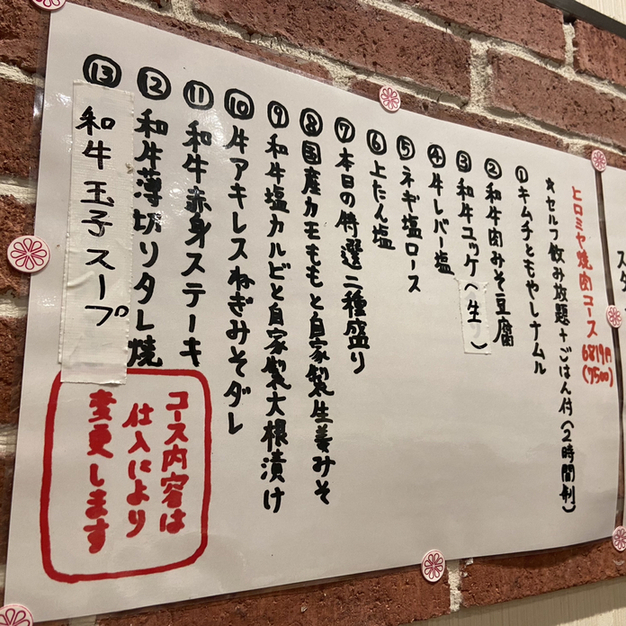 ヒロミヤ焼肉コース 6819円(7500)
★セルフ飲み放題+ごはん付(2時間制)
①キムチともやしナムル
②和牛肉みそ豆腐
③和牛ユッケ(生)
④牛レバー塩
⑤ネギ塩ロース
⑥上たん塩
⑦本日の特選二種盛り
⑧国産カモももと自家製生姜みそ
⑨和牛塩カルビと自家製大根漬け
⑩牛アキレスねぎみそダレ
⑪和牛赤身ステーキ
⑫和牛薄切りタレ焼
⑬和牛玉子スープ
コース内容は
仕入により
変更します